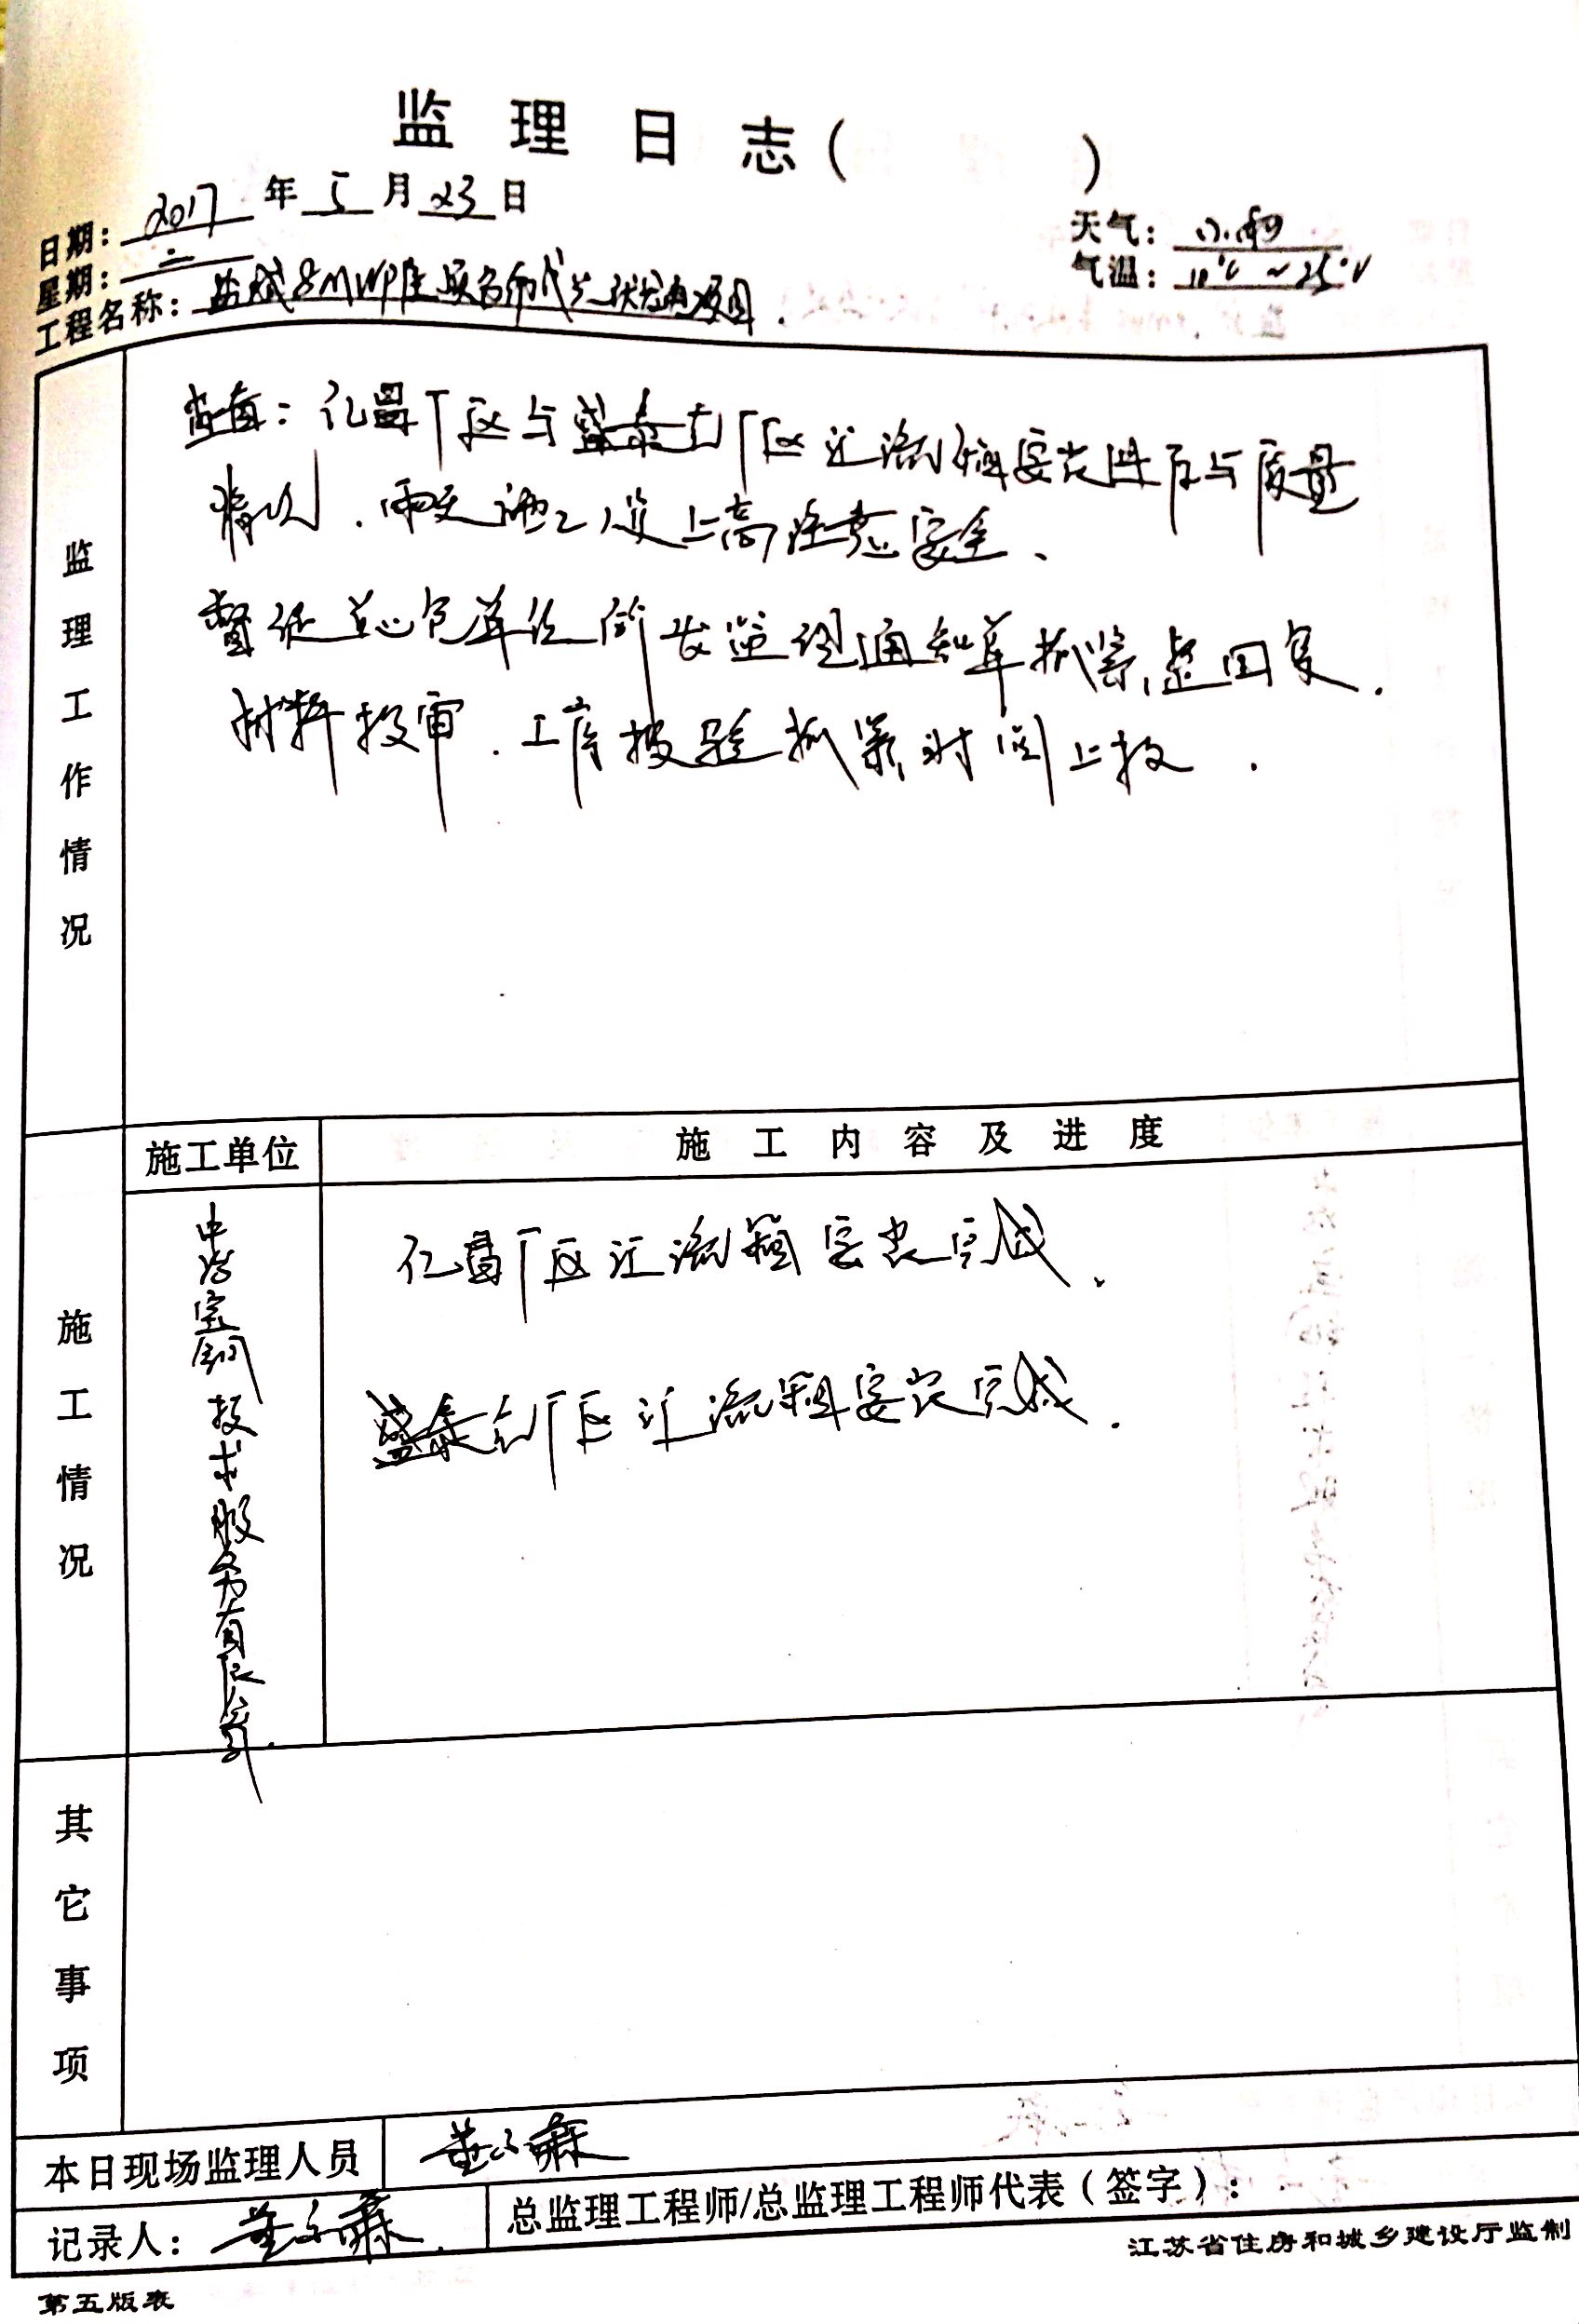 监理日志（ ）
日期：2017年5月23日
天气：小雨
星期：二
气温：10℃～25℃
工程名称：盐城8MWP屋顶分布式光伏发电项目.
监理工作情况
查看：亿昌厂区与盛泰石厂区汇流箱安装进度与质量
情况.雨天施工人员上高注意安全、
督促总包单位所发监理通知单抓紧点回复.
材料报审.工序报验抓紧时间上报.
施工情况
施工单位
施工内容及进度
技术服务有限公司.
亿昌厂区汇流箱安装完成、
盛泰石厂区汇流箱安装完成.
其它事项
本日现场监理人员
记录人：
总监理工程师/总监理工程师代表（签字）：
江苏省住房和城乡建设厅监制
第五版表